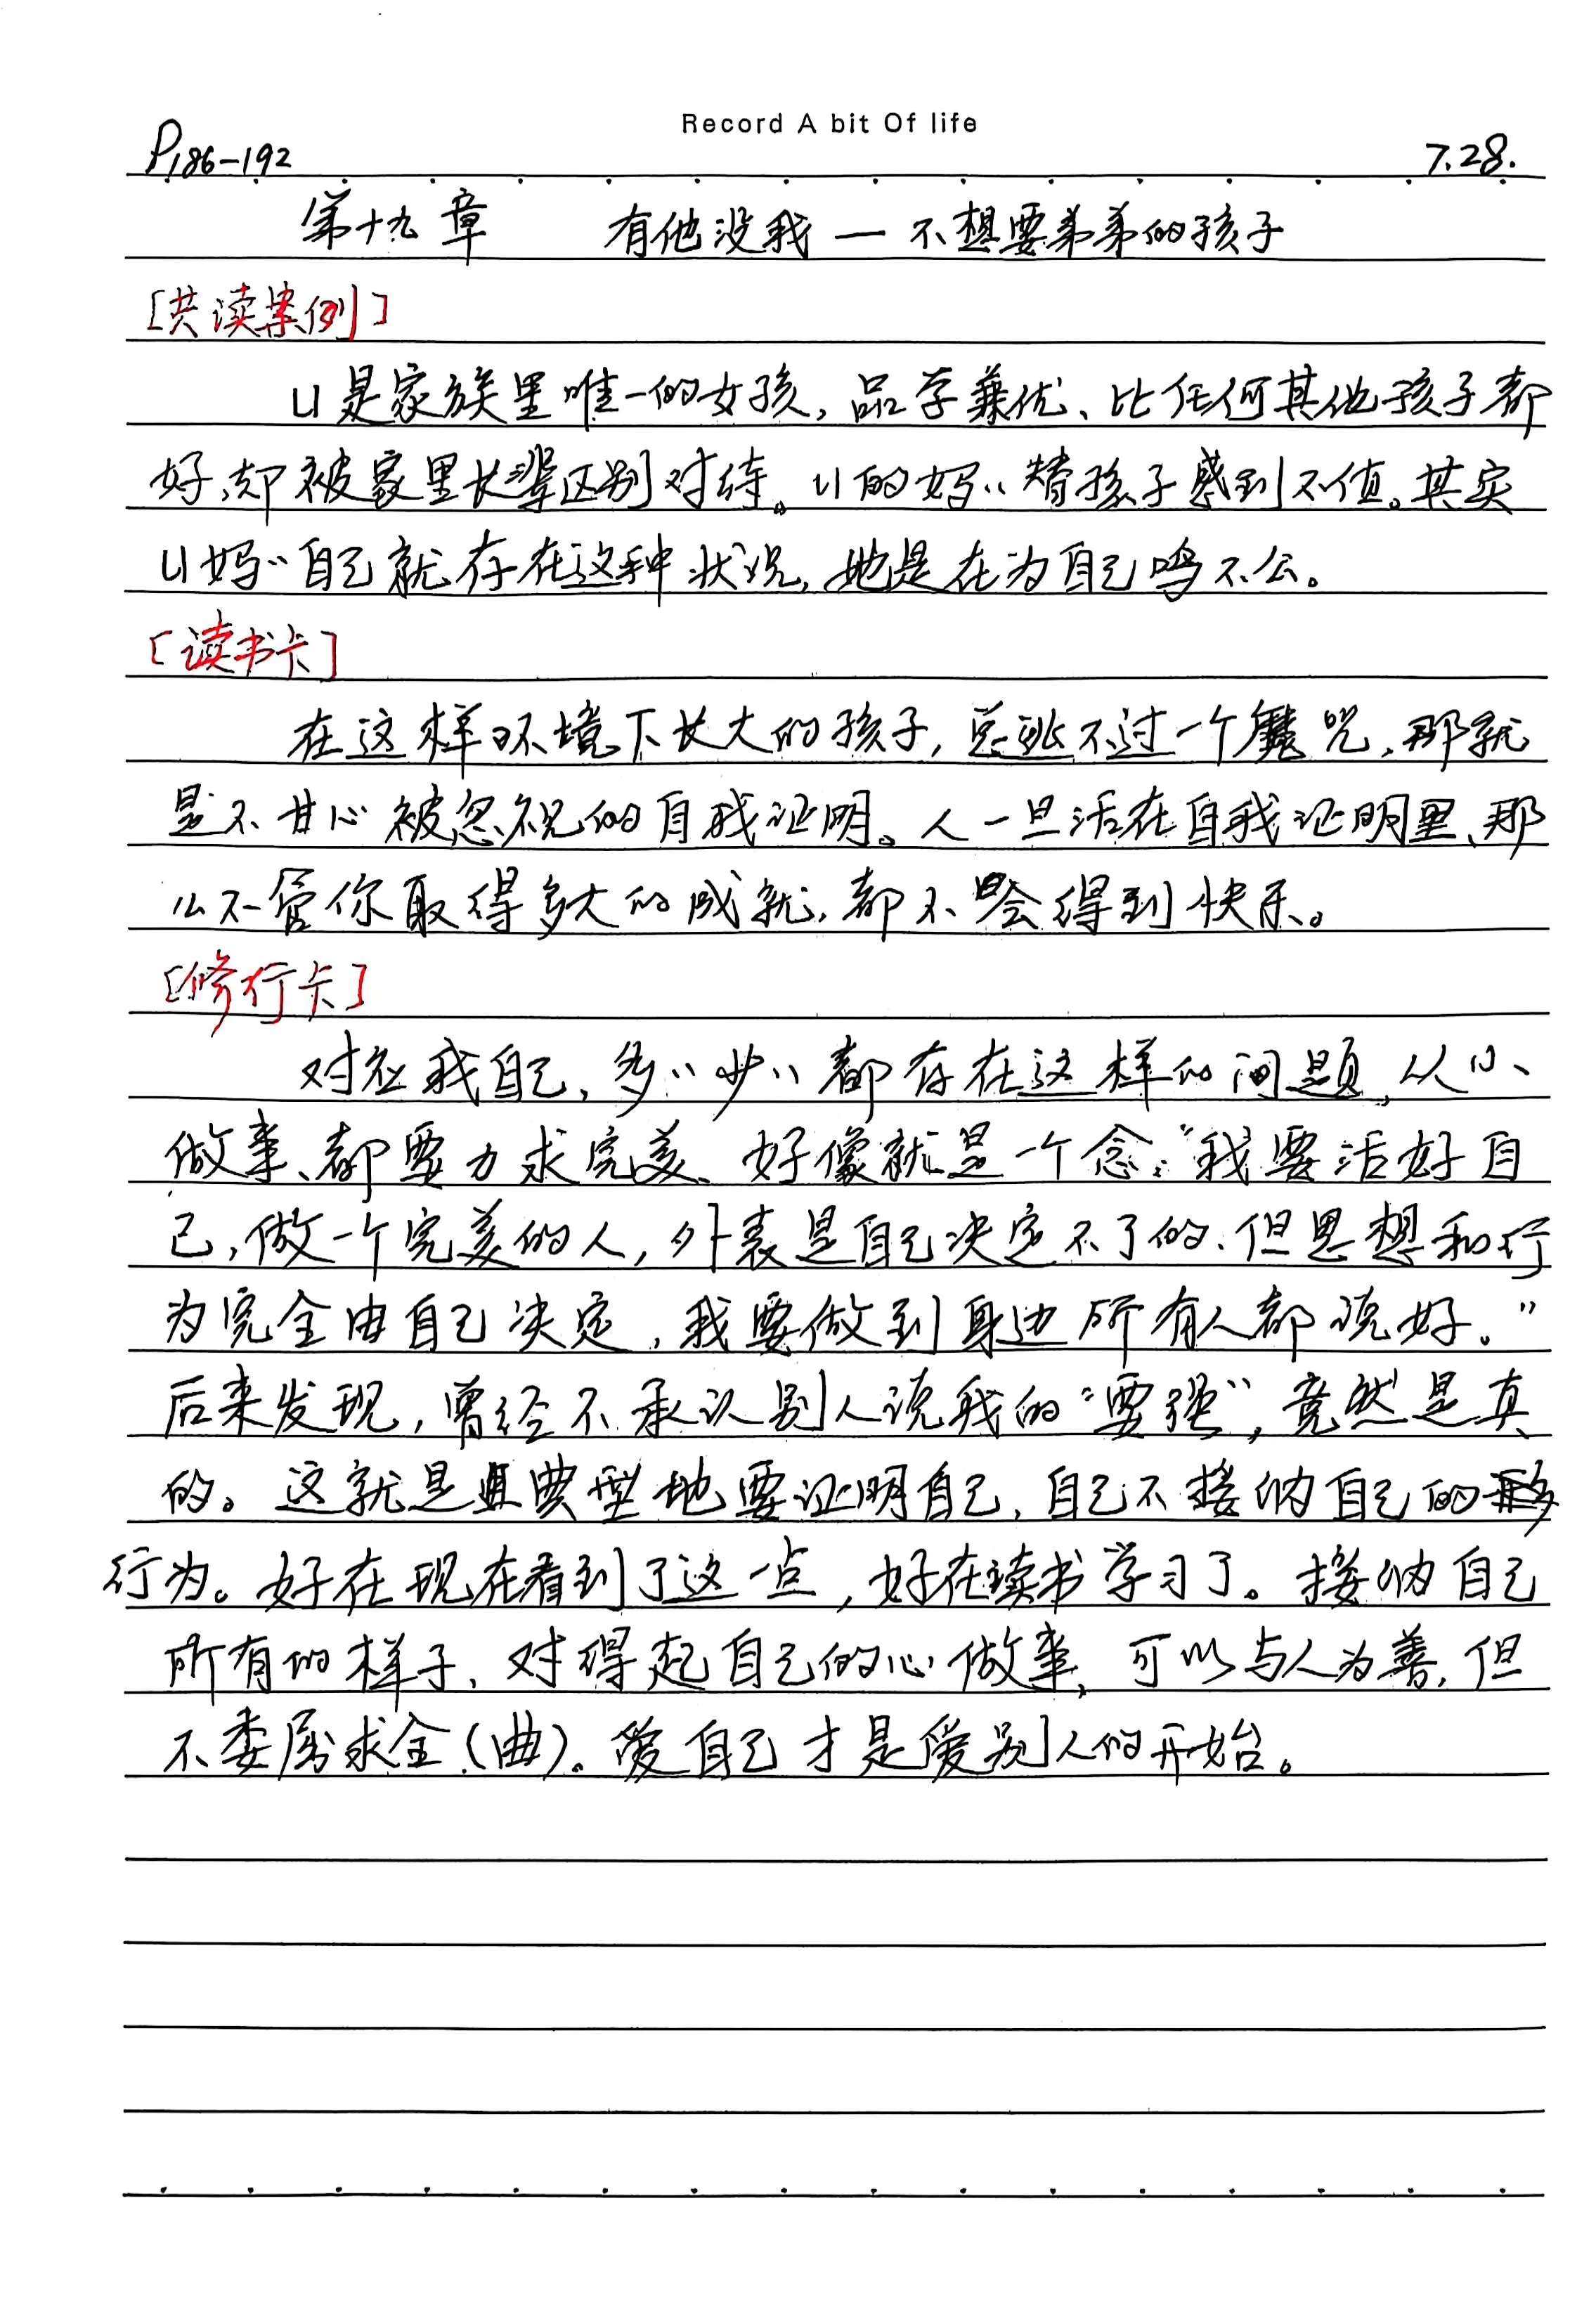 Record A bit Of life
P186-192 7.28.
第十九章 有他没我 — 不想要弟弟的孩子
[共读案例]
U是家族里唯一的女孩,品学兼优、比任何其他孩子都
好,却被家里长辈区别对待。U的妈〃替孩子感到不值。其实
U妈〃自己就存在这种状况,她是在为自己鸣不公。
[读书卡]
在这样环境下长大的孩子,总逃不过一个魔咒,那就
是不甘心被忽视的自我证明。人一旦活在自我证明里、那
么不管你取得多大的成就,都不会得到快乐。
[修行卡]
对应我自己,多〃少〃都存在这样的问题,从小、
做事、都要力求完美、好像就是一个念:“我要活好自
己,做一个完美的人,外表是自己决定不了的、但思想和行
为完全由自己决定,我要做到身边所有人都说好。”
后来发现,曾经不承认别人说我的“要强”,竟然是真
的。这就是典型地要证明自己,自己不接纳自己的
行为。好在现在看到了这一点,好在读书学习了。接纳自己
所有的样子、对得起自己的心做事,可以与人为善,但
不委屈求全(曲)。爱自己才是爱别人的开始。